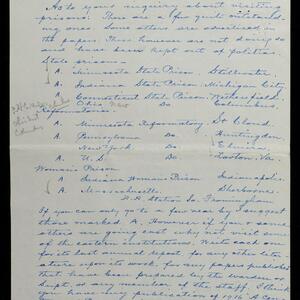 As to your inquiry about visiting
prisons. There are a few quite outstand-
ing ones. Some others are advertised in
the papers. These however are not doing so
and have been kept out of politics.
State prisons
A. Minnesota State Prison, Stillwater.
A. Indiana State Prison Michigan City
A. Connecticut State Prison, Wethersfield
Ohio New Columbus.
Reformatories.
A. Minnesota Reformatory, St Cloud.
A. Pennsylvania Do. Huntingdon,
New York Do. Elmira,
A. U.S. Do. Lorton, Va.
Woman's Prison
A. Indiana Womans Prison Indianapolis.
A. Massachusetts Sherborne.
R.R. Station So. Framingham
If you can only go to a few I suggest
those marked A. However if you & some
others are going east why not visit some
of the eastern institutions. Write each one
for its last annual report for any other liter-
ature upon its work, for any paper published
that have been produced by the warden or
Supt. or any member of the staff. I think
you have my publication of the